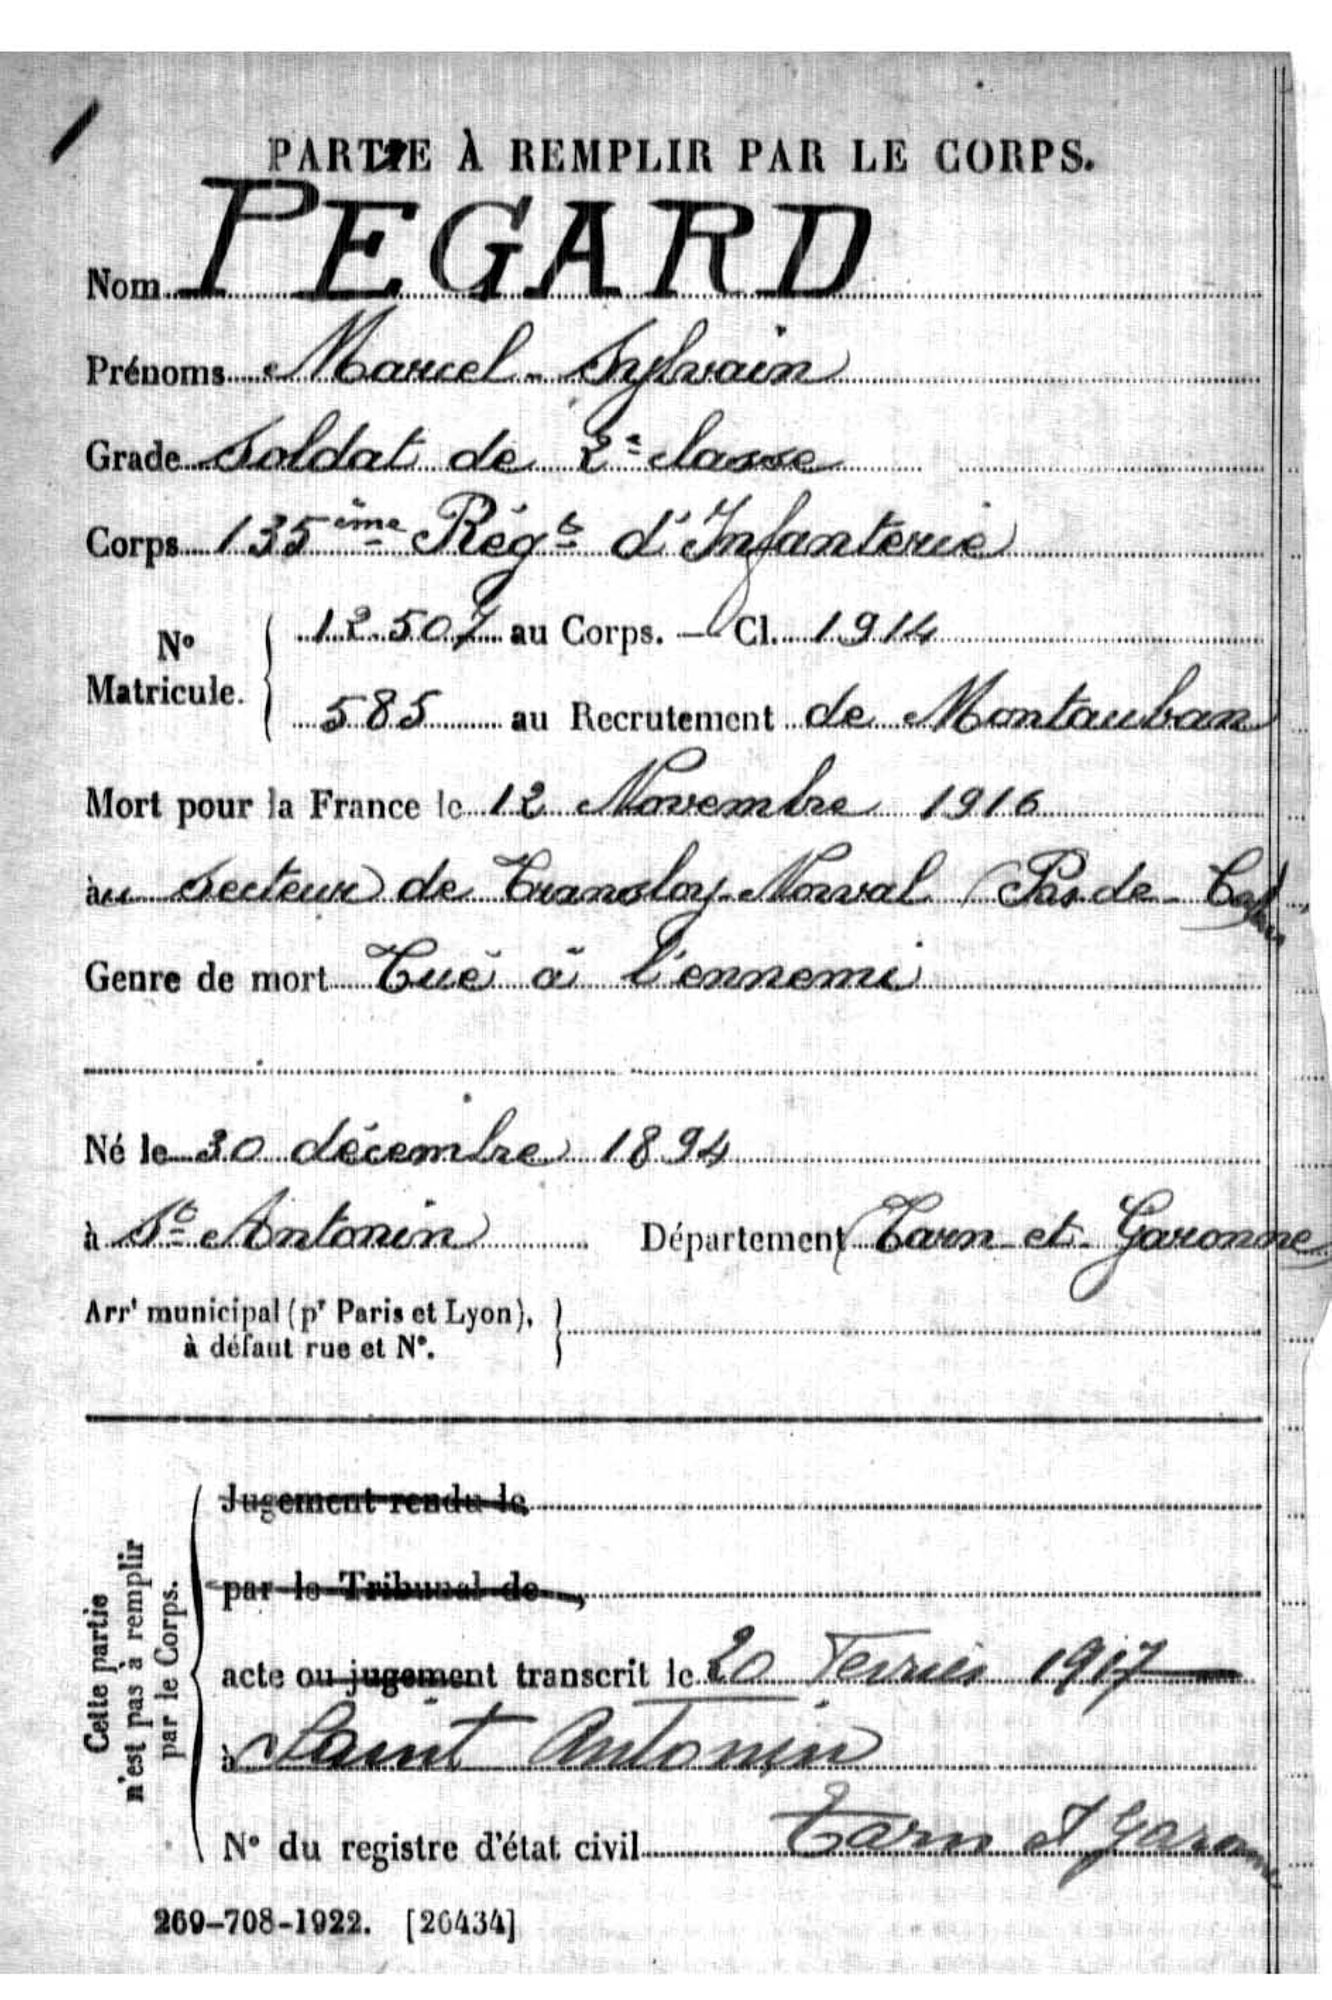 PARTIE À REMPLIR PAR LE CORPS.
Nom PEGARD
Prénoms Marcel - Sylvain
Grade Soldat de 2e classe
Corps 135ème Régt d'Infanterie
No Matricule. 12.507 au Corps. — Cl. 1914
585 au Recrutement de Montauban
Mort pour la France le 12 Novembre 1916
àu secteur de Transloy-Morval (Pas-de-Calais
Genre de mort Tué à l'ennemi
Né le 30 décembre 1894
à St Antonin Département Tarn-et-Garonne
Arrt municipal (pr Paris et Lyon),
à défaut rue et No.
Cette partie
n'est pas à remplir
par le Corps.
Jugement rendu le
par le Tribunal de
acte ou jugement transcrit le 20 Fevrier 1917
à Saint Antonin
No du registre d'état civil Tarn et Garonne
269-708-1922. [26434]